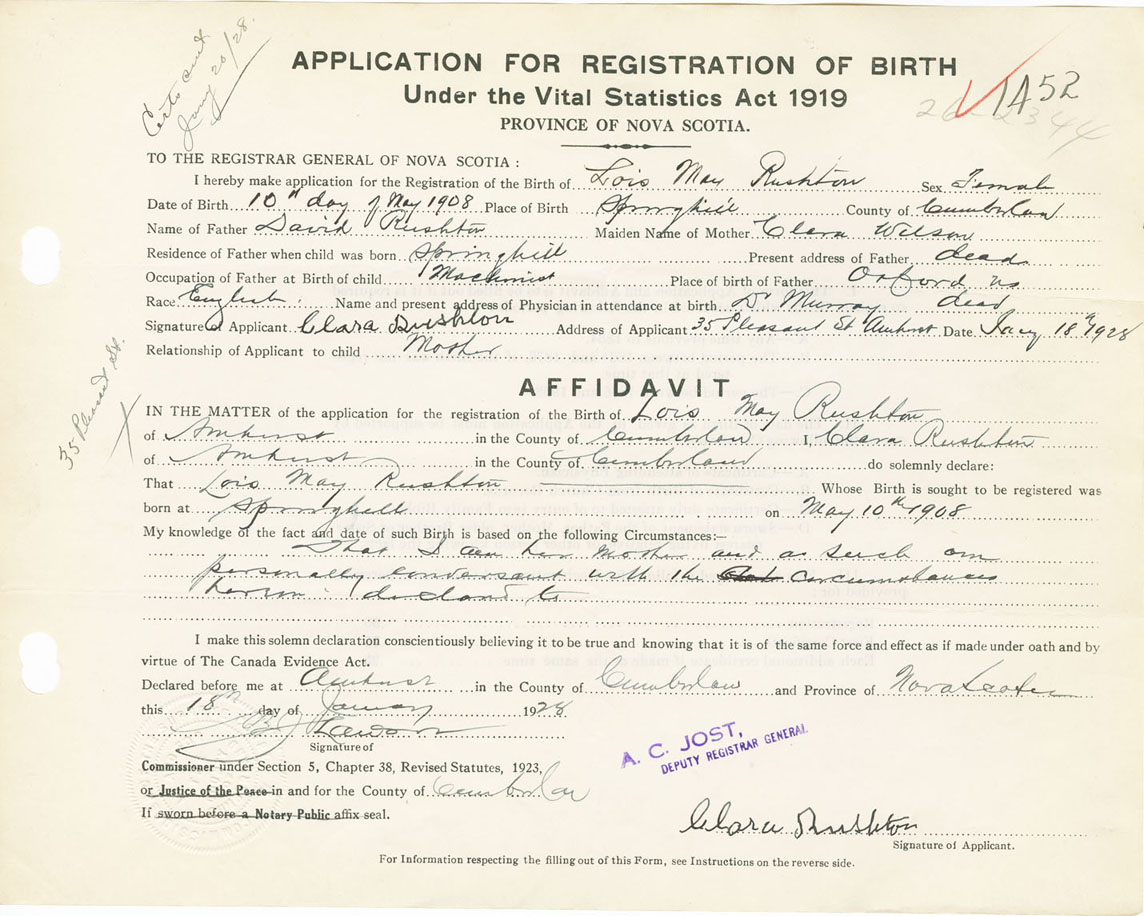 Certs sent
Jany 20/28.
APPLICATION FOR REGISTRATION OF BIRTH
Under the Vital Statistics Act 1919
PROVINCE OF NOVA SCOTIA.
1A52
26 2344
TO THE REGISTRAR GENERAL OF NOVA SCOTIA :
I hereby make application for the Registration of the Birth of Lois May Rushton Sex Female
Date of Birth 10th day of May 1908 Place of Birth Springhill County of Cumberland
Name of Father David Rushton Maiden Name of Mother Clara Wilson
Residence of Father when child was born Springhill Present address of Father dead
Occupation of Father at Birth of child Machinist Place of birth of Father Oxford NS
Race English. Name and present address of Physician in attendance at birth Dr Murray dead
Signature of Applicant Clara Rushton Address of Applicant 35 Pleasant St Amherst Date Jany 18th 1928
Relationship of Applicant to child Mother
35 Pleasant St.
AFFIDAVIT
IN THE MATTER of the application for the registration of the Birth of Lois May Rushton
of Amherst in the County of Cumberland I, Clara Rushton
of Amherst in the County of Cumberland do solemnly declare:
That Lois May Rushton Whose Birth is sought to be registered was
born at Springhill on May 10th 1908
My knowledge of the fact and date of such Birth is based on the following Circumstances:—
That I am her Mother and as such am
personally conversant with the circumstances
herein declared to
I make this solemn declaration conscientiously believing it to be true and knowing that it is of the same force and effect as if made under oath and by
virtue of The Canada Evidence Act.
Declared before me at Amherst in the County of Cumberland and Province of Nova Scotia
this 18th day of January 1928
Signature of
Commissioner under Section 5, Chapter 38, Revised Statutes, 1923,
or Justice of the Peace in and for the County of Cumberland
If sworn before a Notary Public affix seal.
A. C. JOST,
DEPUTY REGISTRAR GENERAL
Clara Rushton
Signature of Applicant.
For Information respecting the filling out of this Form, see Instructions on the reverse side.